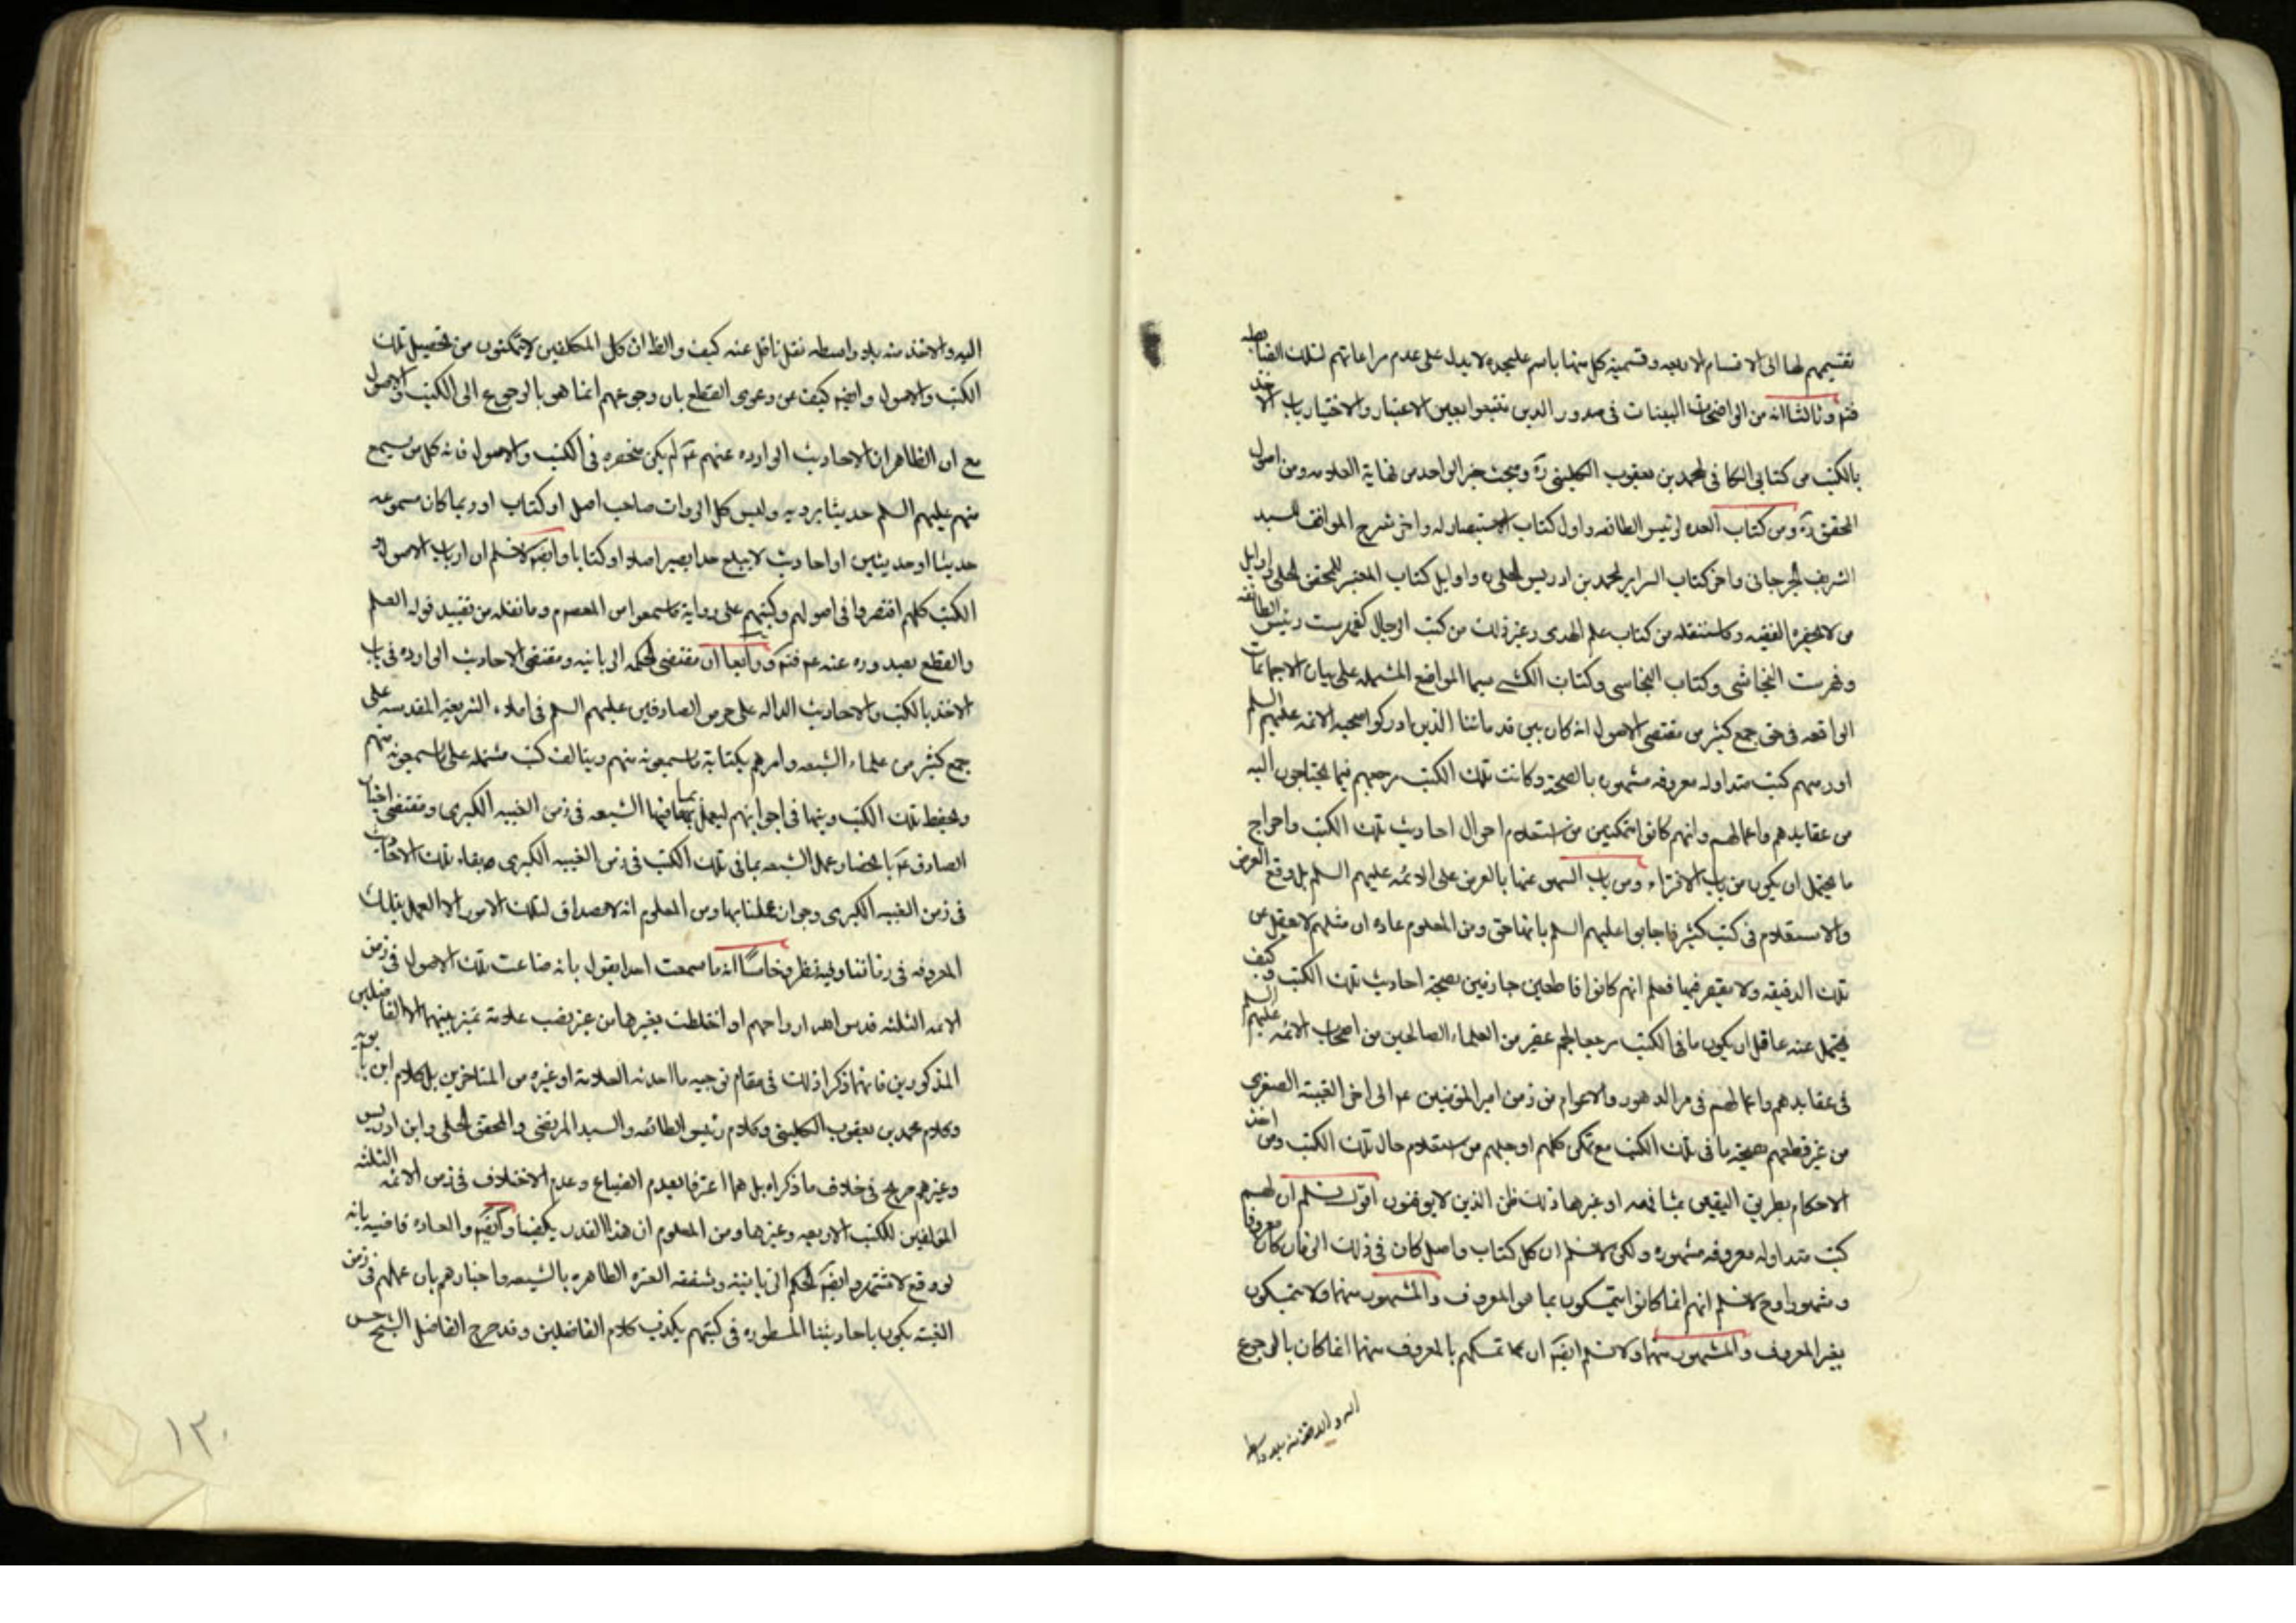 تقسيمهم لها الى الاقسام الاربعه وتسمية كل منها باسم عليحده لا يدل على عدم مراعاتهم لتلك الضابطه
فتم وثالثا انه من الواضحات البينات في صدور الذين تتبعوا بعين الاعتبار والاختيار باب الاخذ
بالكتب من كتابي الكافي لمحمد بن يعقوب الكليني ره ومبحث خبر الواحد من نهاية العلامه ومن اصول
المحقق ره ومن كتاب العده لرئيس الطائفه واول كتاب الاستبصار له واخر شرح المواقف للسيد
الشريف الجرجاني واخر كتاب السراير لمحمد بن ادريس الحلي ره واوايل كتاب المعتبر للمحقق الحلي واوايل
من لا يحضره الفقيه وكما سننقله من كتاب علم الهدى وغير ذلك من كتب الرجال كفهرست رئيس الطائفه
وفهرست النجاشي وكتاب النجاسي وكتاب الكشي سيما المواضع المشتمله على بيان الاجماعات
الواقعه في حق جمع كثير من مقتضى الاصول انه كان بين قدمائنا الذين ادركوا صحبه الائمه عليهم السلم
اور منهم كتب متداوله معروفه مشهوره بالصحة وكانت تلك الكتب مرجعهم فيما يحتاجون اليه
من عقايدهم واعمالهم وانهم كانوا متمكنين من استعلام احوال احاديث تلك الكتب واخراج
ما يحتمل ان يكون من باب الافتراء ومن باب السهو عنها بالعرض على الائمه عليهم السلم بل وقع العرض
والاستعلام في كتب كثير فاجابوا عليهم السلم بانها حق ومن المعلوم عاده ان مثلهم لا يغفل عن
تلك الدقيقه ولا يقصر فيها فعلم انهم كانوا قاطعين جازمين بصحة احاديث تلك الكتب وكيف
يحتمل عند عاقل ان يكون ما في الكتب مرجعا لجم غفير من العلماء الصالحين من اصحاب الائمه عليهم السلم
في عقايدهم واعمالهم في مر الدهور والاعوام من زمن امير المؤمنين ع الى اخر الغيبة الصغرى
من غير قطعهم بصحة ما في تلك الكتب مع تمكن كلهم او جلهم من استعلام حال تلك الكتب ومن اخذ
الاحكام بطريق اليقين مشافهه او غيرها ذلك ظن الذين لا يوقنون اقول نسلم ان لهم
كتب متداوله معروفه مشهوره ولكن لا نسلم ان كل كتاب واصل كان في ذلك الزمان كان معروفا
ومشهورا وح لا نسلم انهم انما كانوا يتمسكون بما هو المعروف والمشهور منها ولا يتمسكون
بغير المعروف والمشهور منها ولا نسلم ايضا ان تمسكهم بالمعروف منها انما كان بالرجوع
اليه والاخذ منه بلا واسطه
اليه والاخذ منه بلا واسطه نقل ناقل عنه كيف والظ ان كل المكلفين لا يتمكنون من تحصيل تلك
الكتب والاصول وايضا كيف عن دعوى القطع بان رجوعهم انما هو بالرجوع الى الكتب والاصول
مع ان الظاهر ان الاحاديث الوارده عنهم ع لم يكن منحصره في الكتب والاصول فانه كل من يسمع
منهم عليهم السلم حديثا يرويه وليس كل الروات صاحب اصل او كتاب او ربما كان مسموعه
حديثا او حديثين او احاديث لا يبلغ حدا يصير اصلا او كتابا وايضا لا نسلم ان ارباب الاصول و
الكتب كلهم اقتصروا في اصولهم وكتبهم على رواية ما سمعوا من المعصوم وما نقله من تقييد قوله العلم
والقطع بصدوره عنه ع فتم ورابعا ان مقتضى الحكمه الربانيه ومقتضى الاحاديث الوارده في باب
الاخذ بالكتب والاحاديث الداله على حرص الصادقين عليهم السلم في املاء الشريعه المقدسه على
جمع كثير من علماء الشيعه وامرهم بكتابة ما سمعوه منهم وبتالف كتب مشتمله على ما سمعوه منهم
وبحفظ تلك الكتب وبثها في اخوانهم ليعمل بما فيها الشيعه في زمن الغيبه الكبرى ومقتضى اخبار
الصادق ع بانحصار عمل الشيعه بما في تلك الكتب في زمن الغيبه الكبرى هو بقاء تلك الاحاديث
في زمن الغيبه الكبرى وجواز عملنا بها ومن المعلوم انه لا مصداق لتلك الامور الا العمل بتلك
المعروفه في زماننا وفيه نظر وخامسا انه ما سمعت احدا يقول بانه ضاعت تلك الاصول في زمن
الائمه الثلثه قدس الله ارواحهم او اختلطت بغيرها من غير نصب علامة تميز بينهما الا الفاضلين
المذكورين فانهما ذكرا ذلك في مقام توجيه ما احدثه العلامة او غيره من المتاخرين بل كلام ابن بابويه
وكلام محمد بن يعقوب الكليني وكلام رئيس الطائفه والسيد المرتضى والمحقق الحلي وابن ادريس
وغيرهم صريح في خلاف ما ذكراه بل هما اعترفا بعدم الضياع وعدم الاختلاف في زمن الائمه الثلثه
المؤلفين للكتب الاربعه وغيرها ومن المعلوم ان هذا القدر يكفينا وايضا والعاده قاضيه بانه
لو وقع لاشتهر وايضا الحكم الربانية وشفقه العترة الطاهره بالشيعه واخبارهم بان عملهم في زمن
الغيبة يكون باحاديثنا المسطوره في كتبهم يكذب كلام الفاضلين وقد صرح الفاضل الشيخ حسن
١٢٠